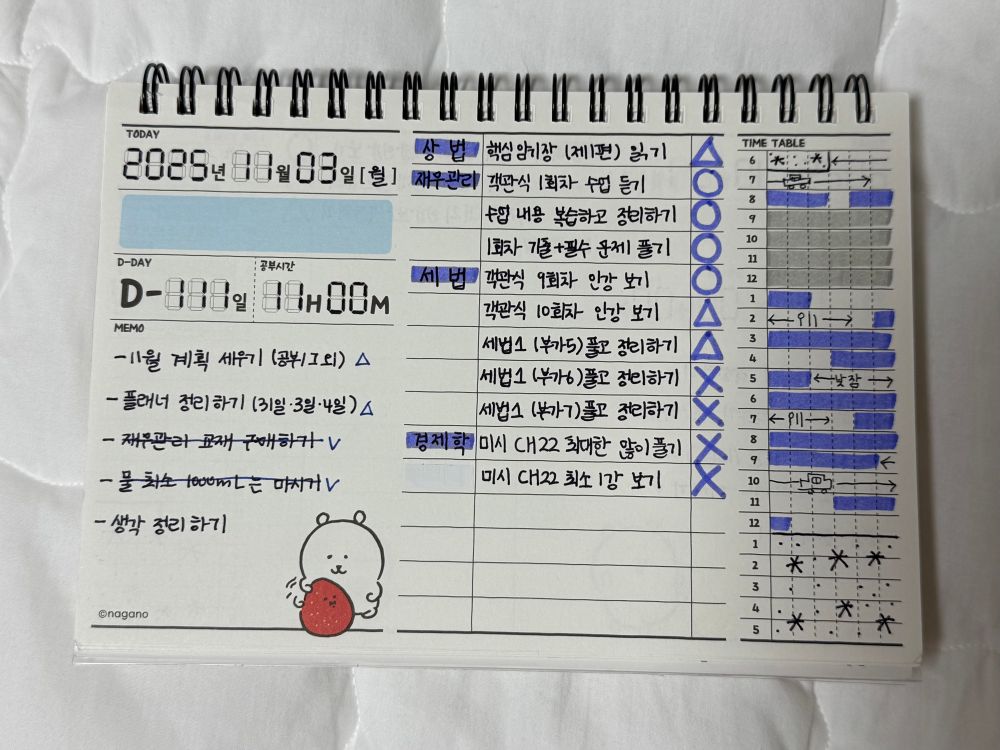 TODAY
2025년 11월 03일 [월]
D-DAY
D-111일
공부시간
11H00M
MEMO
-11월 계획 세우기 (공부/그 외) △
-플래너 정리하기 (31일·3일·4일) △
-재무관리 교재 구매하기 ✓
-물 최소 1000mL는 마시기 ✓
-생각 정리하기
©nagano
상법 핵심 암기장 (제1편) 읽기 △
재무관리 객관식 1회차 수업 듣기 ○
수업 내용 복습하고 정리하기 ○
1회차 기출+필수 문제 풀기 ○
세법 객관식 9회차 인강 보기 ○
객관식 10회차 인강 보기 △
세법1 (부가5) 풀고 정리하기 △
세법1 (부가6) 풀고 정리하기 X
세법1 (부가7) 풀고 정리하기 X
경제학 미시 CH22 최대한 많이 풀기 X
미시 CH22 최소 1강 보기 X
TIME TABLE
6
7
8
9
10
11
12
1
2
3
4
5 낮잠
6
7
8
9
10
11
12
1
2
3
4
5